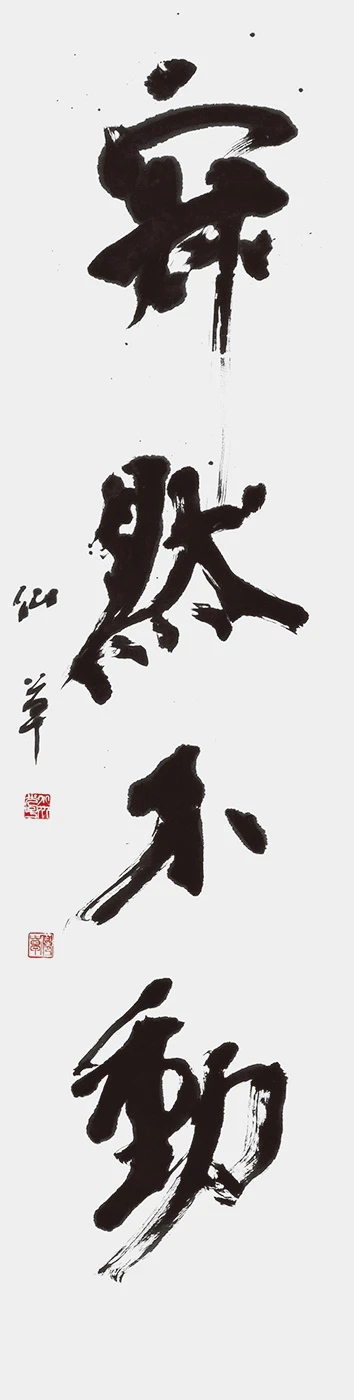 寂然不動
仙草